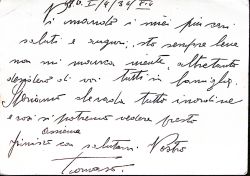 P.D. 1/4/34 XII
Vi mando i miei più cari
saluti e auguri, sto sempre bene
non mi manca niente, altrettanto
desidero di voi tutti in famiglia.
Speriamo che vada tutto in ordine
e così si potremo vedere presto
assieme
finisco con salutarvi Vostro
Tommaso.